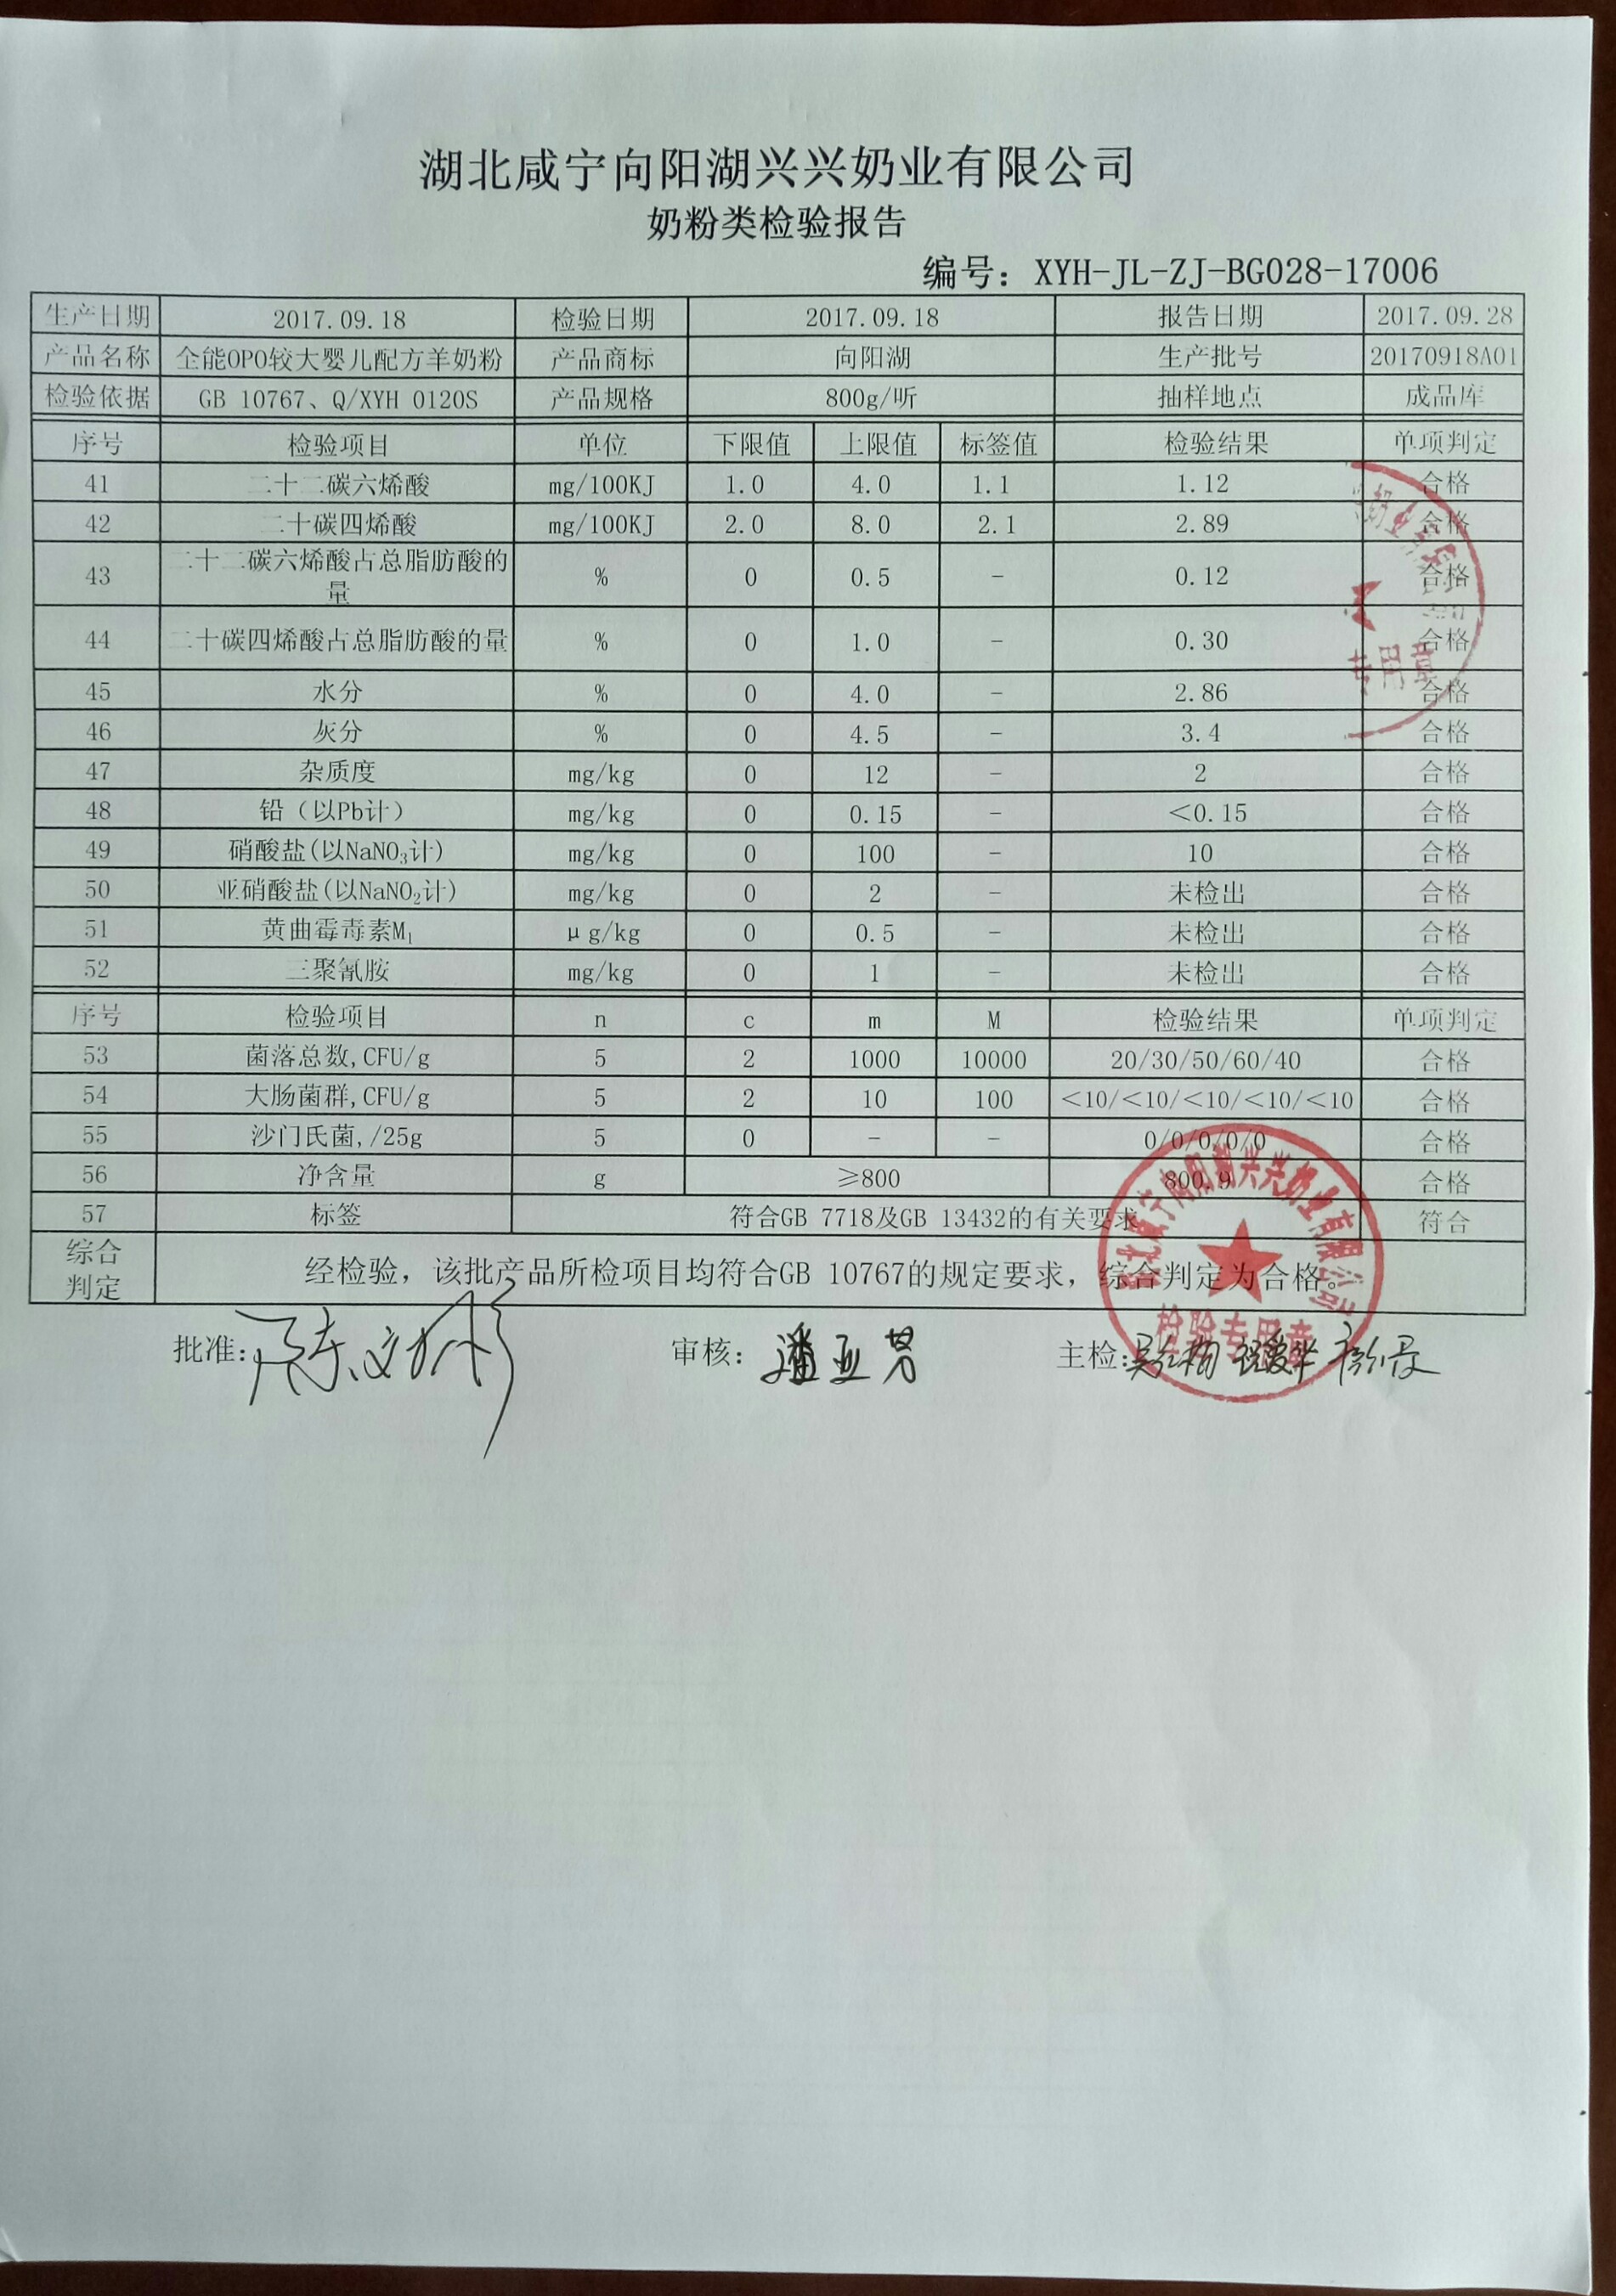 湖北咸宁向阳湖兴兴奶业有限公司
奶粉类检验报告
编号：XYH-JL-ZJ-BG028-17006
生产日期 2017.09.18 检验日期 2017.09.18 报告日期 2017.09.28
产品名称 全能OPO较大婴儿配方羊奶粉 产品商标 向阳湖 生产批号 20170918A01
检验依据 GB 10767、Q/XYH 0120S 产品规格 800g/听 抽样地点 成品库
序号 检验项目 单位 下限值 上限值 标签值 检验结果 单项判定
41 二十二碳六烯酸 mg/100KJ 1.0 4.0 1.1 1.12 合格
42 二十碳四烯酸 mg/100KJ 2.0 8.0 2.1 2.89 合格
43 二十二碳六烯酸占总脂肪酸的量 % 0 0.5 - 0.12 合格
44 二十碳四烯酸占总脂肪酸的量 % 0 1.0 - 0.30 合格
45 水分 % 0 4.0 - 2.86 合格
46 灰分 % 0 4.5 - 3.4 合格
47 杂质度 mg/kg 0 12 - 2 合格
48 铅（以Pb计） mg/kg 0 0.15 - ＜0.15 合格
49 硝酸盐(以NaNO₃计) mg/kg 0 100 - 10 合格
50 亚硝酸盐(以NaNO₂计) mg/kg 0 2 - 未检出 合格
51 黄曲霉毒素M₁ μg/kg 0 0.5 - 未检出 合格
52 三聚氰胺 mg/kg 0 1 - 未检出 合格
序号 检验项目 n c m M 检验结果 单项判定
53 菌落总数,CFU/g 5 2 1000 10000 20/30/50/60/40 合格
54 大肠菌群,CFU/g 5 2 10 100 ＜10/＜10/＜10/＜10/＜10 合格
55 沙门氏菌,/25g 5 0 - - 0/0/0/0/0 合格
56 净含量 g ≥800 800.9 合格
57 标签 符合GB 7718及GB 13432的有关要求 符合
综合判定 经检验，该批产品所检项目均符合GB 10767的规定要求，综合判定为合格。
批准： 审核： 主检：
专用章
湖北咸宁向阳湖兴兴奶业有限公司
检验专用章